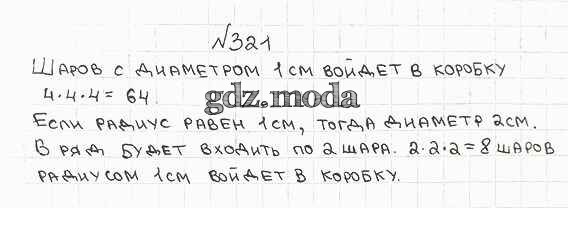 №321
Шаров с диаметром 1см войдет в коробку
4·4·4= 64.
gdz.moda
Если радиус равен 1см, тогда диаметр 2см.
В ряд будет входить по 2 шара. 2·2·2=8 шаров
радиусом 1см войдет в коробку.